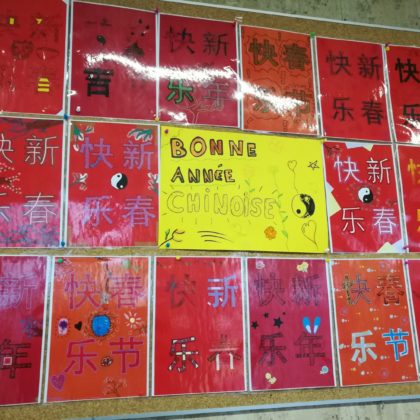 吉
快新
乐年
快春
乐节
快新
乐春
新
乐春
快新
乐春
BONNE
ANNÉE
CHINOISE
快新
乐春
新
年
快春
乐节
快新
乐
快新
乐年
快春
乐节